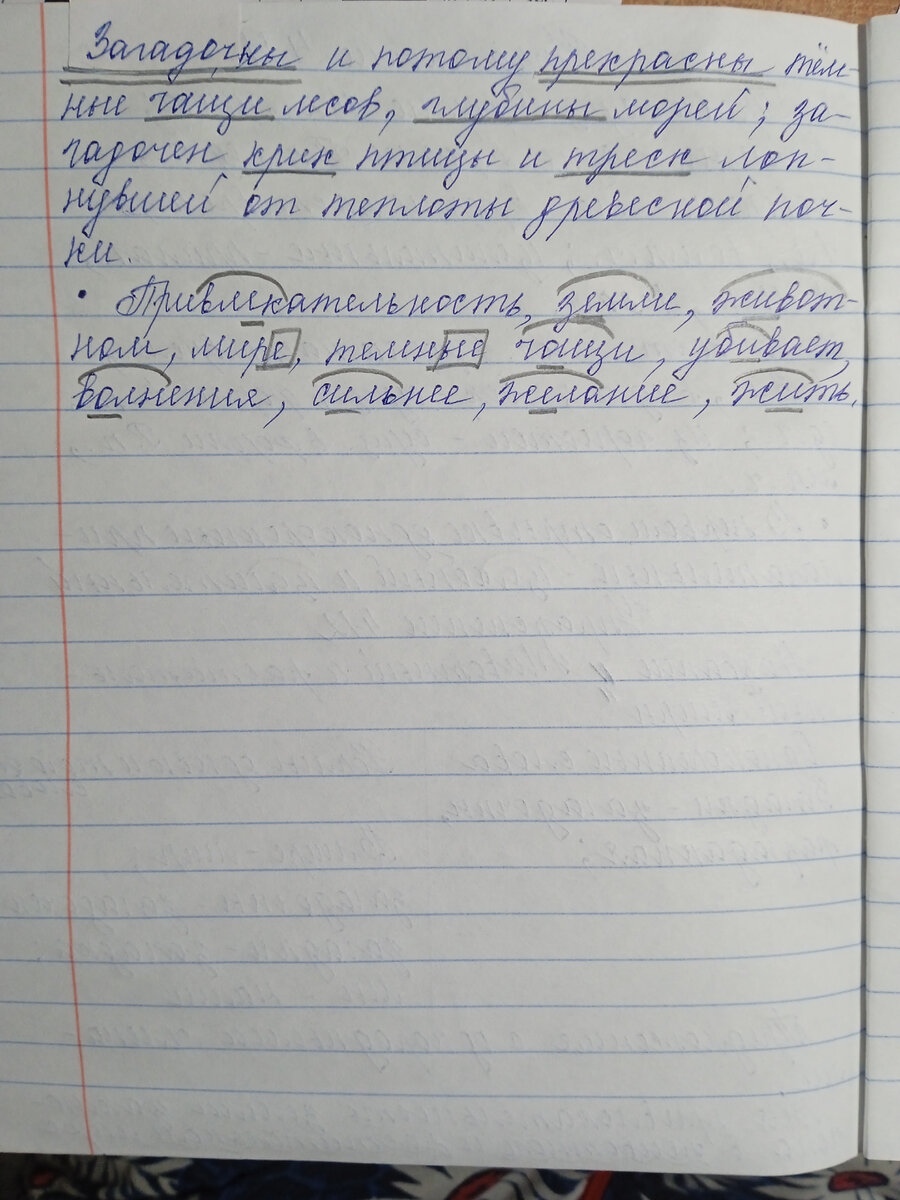 Загадочны и потому прекрасны тём-
ные чащи лесов, глубины морей; за-
гадочен крик птицы и треск лоп-
нувшей от теплоты древесной поч-
ки.
• Привлекательность, земли, живот-
ном, мире, темные чащи, убивает,
волнения, сильнее, желание, жить.